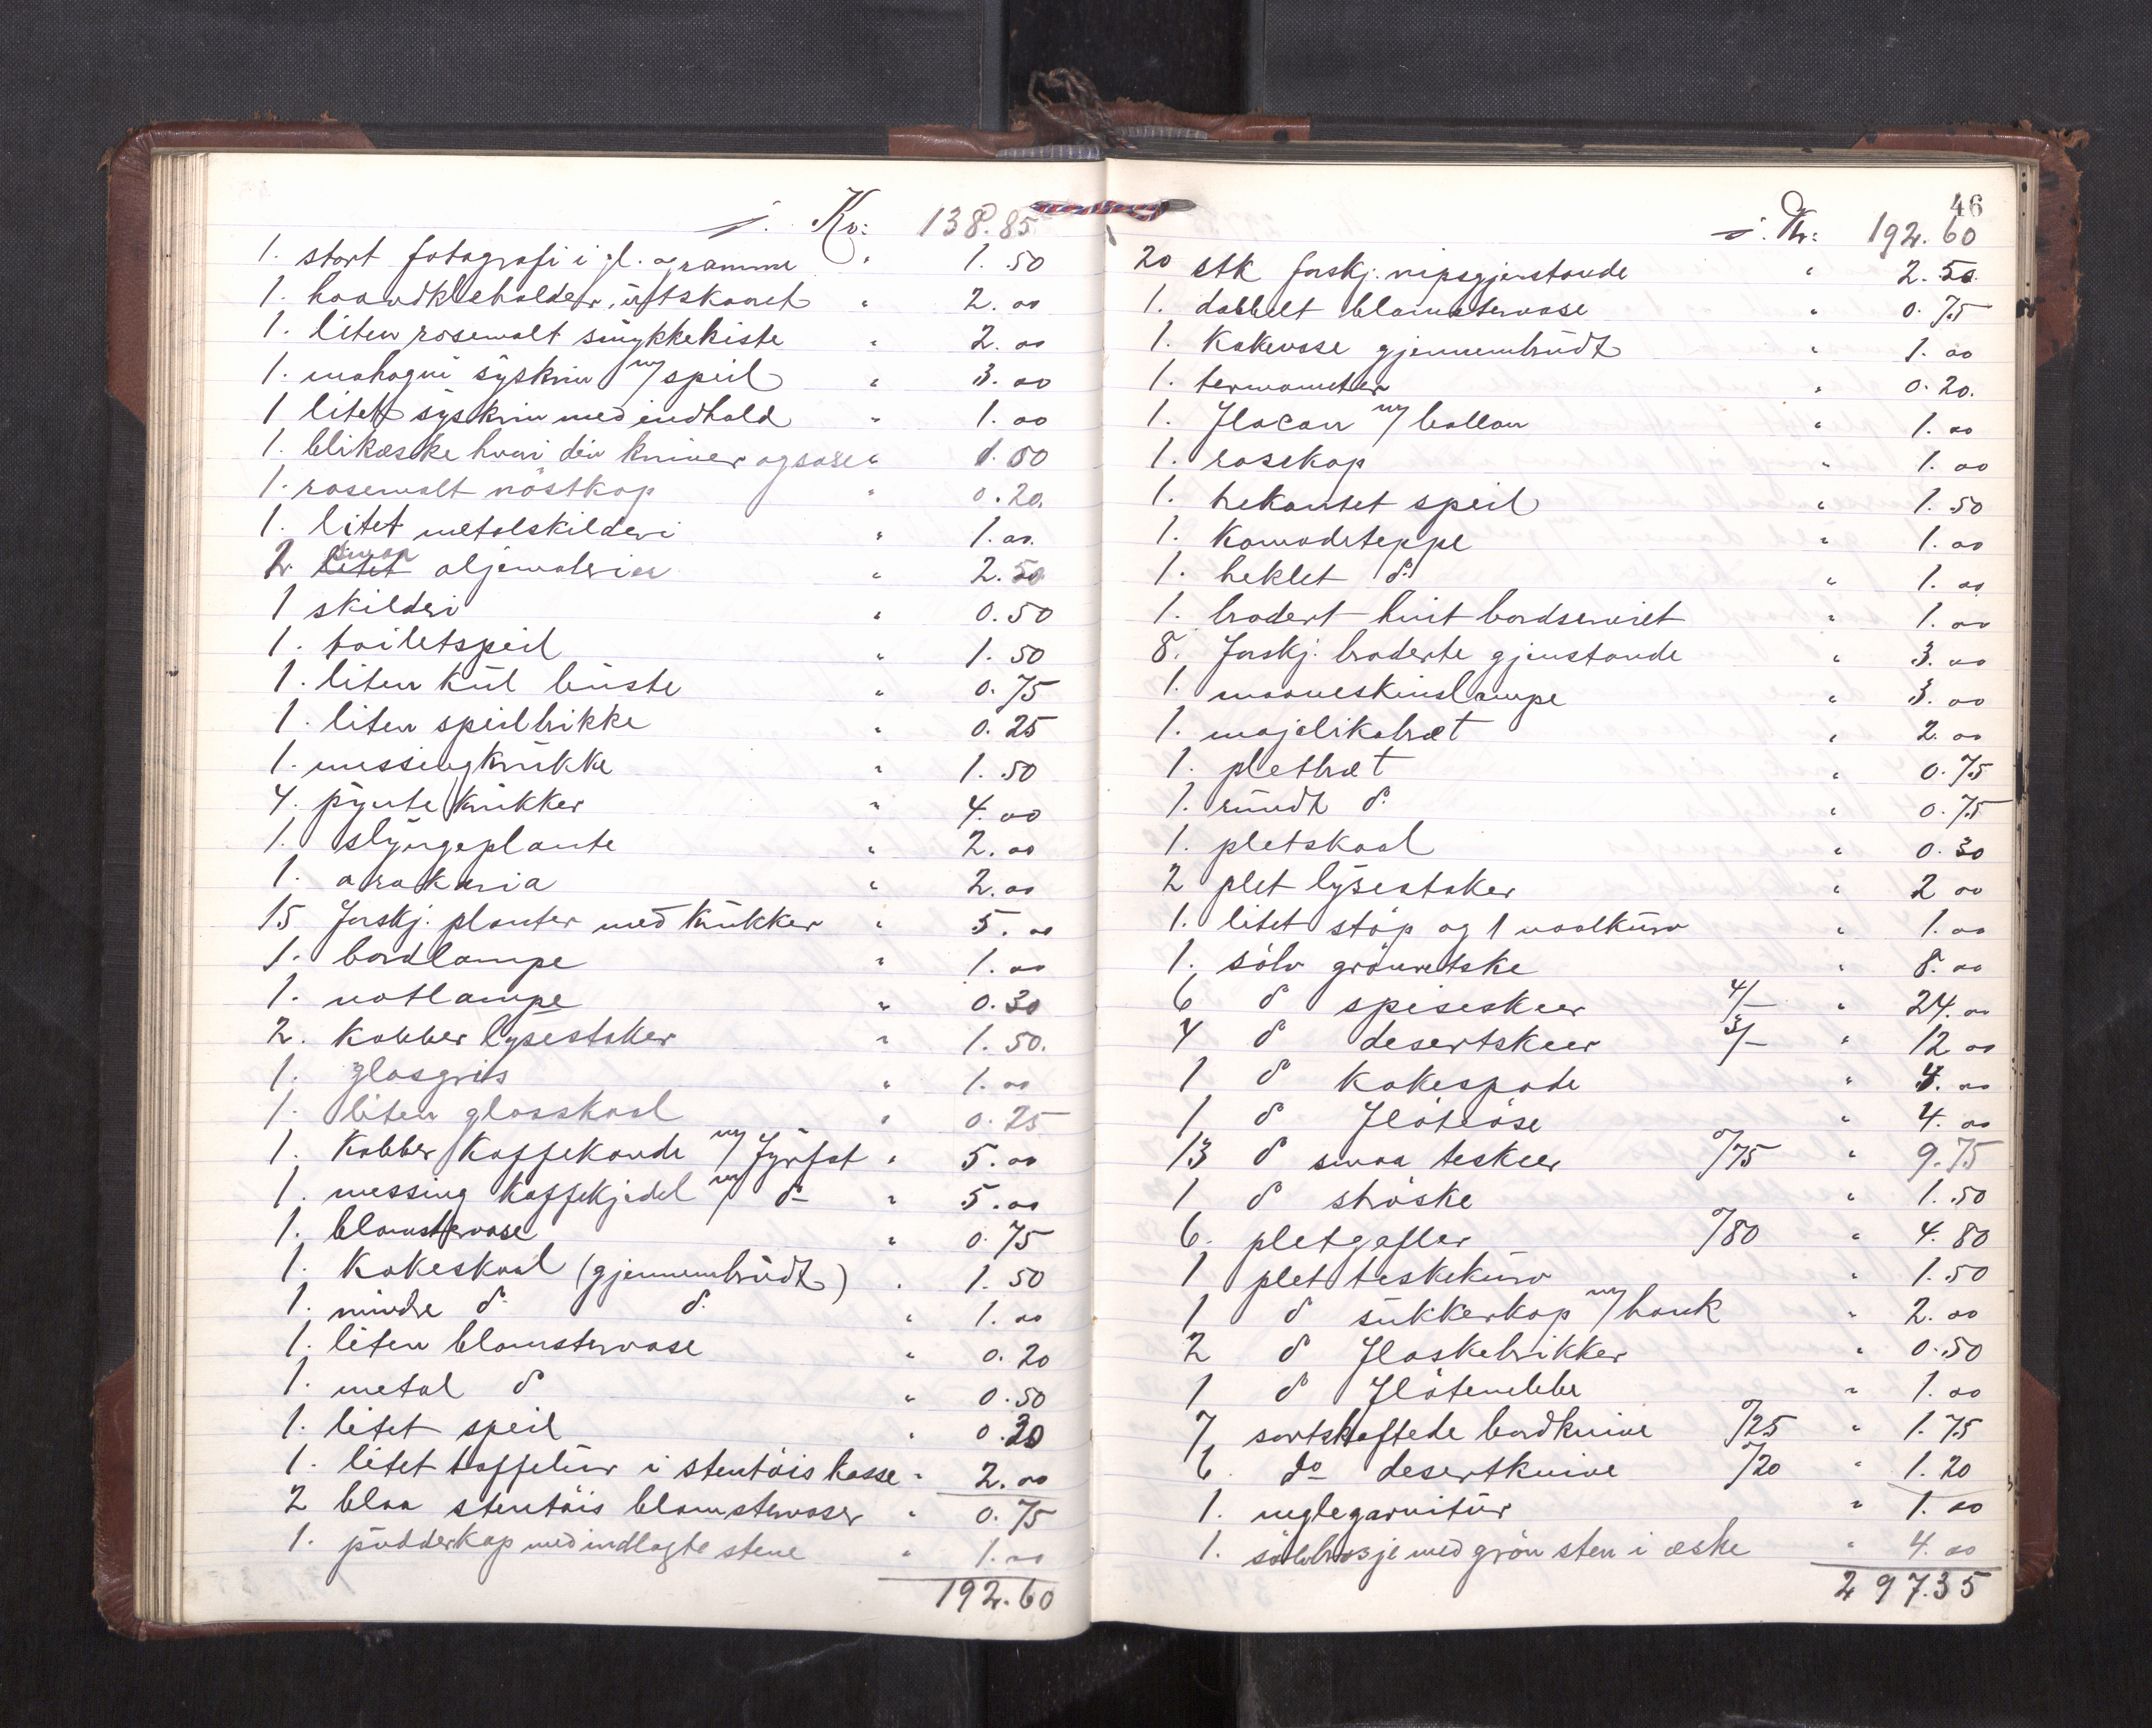 i. Kr: 138.85
1. stort fotografi i gl. og ramme " 1.50
1. haandklæholder, utskaaret " 2.00
1. liten rosemalt smykkekiste " 2.00
1. mahogni syskrin m/speil " 3.00
1 litet syskrin med indhold " 1.00
1. blikæske hvori div kniver og saxe " 1.50
1. rosemalt nöstkop " 0.20.
1. litet metalskilderi " 1.00.
2. smaa oljemalerier " 2.50
1 skilderi " 0.50
1. toiletspeil " 1.50
1. liten kul büste " 0.75
1. liten speilbrikke " 0.25
1. messingkrukke " 1.50
4. pyntekrukker " 4.00
1. slyngeplante " 2.00
1. arakaria " 2.00
15 forskj. planter med krukker " 5.00
1. bordlampe " 1.00
1. natlampe " 0.30
2. kobber lysestaker " 1.50.
1. glasgris " 1.00
1. liten glasskaal " 0.25
1. Kobber kaffekande m/ fyrfat " 5.00
1. messing kaffekjedel m/ do " 5.00
1. blomstervase " 0.75
1. Kakeskaal (gjennembrudt) " 1.50
1. mindre do do " 1.00
1. liten blomstervase " 0.20
1. metal do " 0.50
1. litet speil " 0.20
1. litet taffelur i stentöis kasse " 2.00
2 blaa stentöis blomstervaser " 0.75
1. pudderkop med indlagte stene " 1.00
192.60
46
i. Kr: 192.60
20 stk forskj. nipsgjenstande " 2.50.
1. dobbelt blomstervase " 0.75
1. Kakevase gjennembrudt " 1.00
1. termometer " 0.20.
1. Flacon m/ ballon " 1.00
1. rosekop " 1.00
1. trekantet speil " 1.50
1. Komodeteppe " 1.00
1. heklet do " 1.00
1. brodert hvit bordserviet " 1.00
8. forskj. broderte gjenstande " 3.00
1. maaneskinslampe " 3.00
1. majolikabræt " 2.00
1. pletbræt " 0.75
1. rundt do " 0.75
1. pletskaal " 0.30
2 plet lysestaker " 2 00
1. litet stöp og 1 vaalkurv " 1.00
1. sölv grönretske " 8.00
6 do spiseskeer 4/- " 24.00
4 do desertskeer 3/- " 12 00
1 do kakespade " 3.00
1 do flöteöse " 4.00
13 do smaa teskeer 0/75 " 9.75
1 do ströske " 1.50
6. pletgafler 0/80 " 4.80
1 plet teskekurv " 1.50
1 do sukkerkop m/ hank " 2.00
2 do flaskebrikker " 0.50
1 do flötenebbe " 1.00
7 sortskaftede bordknive 0/25 " 1.75
6 do desertknive 0/20 " 1.20
1. neglegarnitur " 1.00
1. sölvbrosje med grön sten i æske " 4.00
297.35